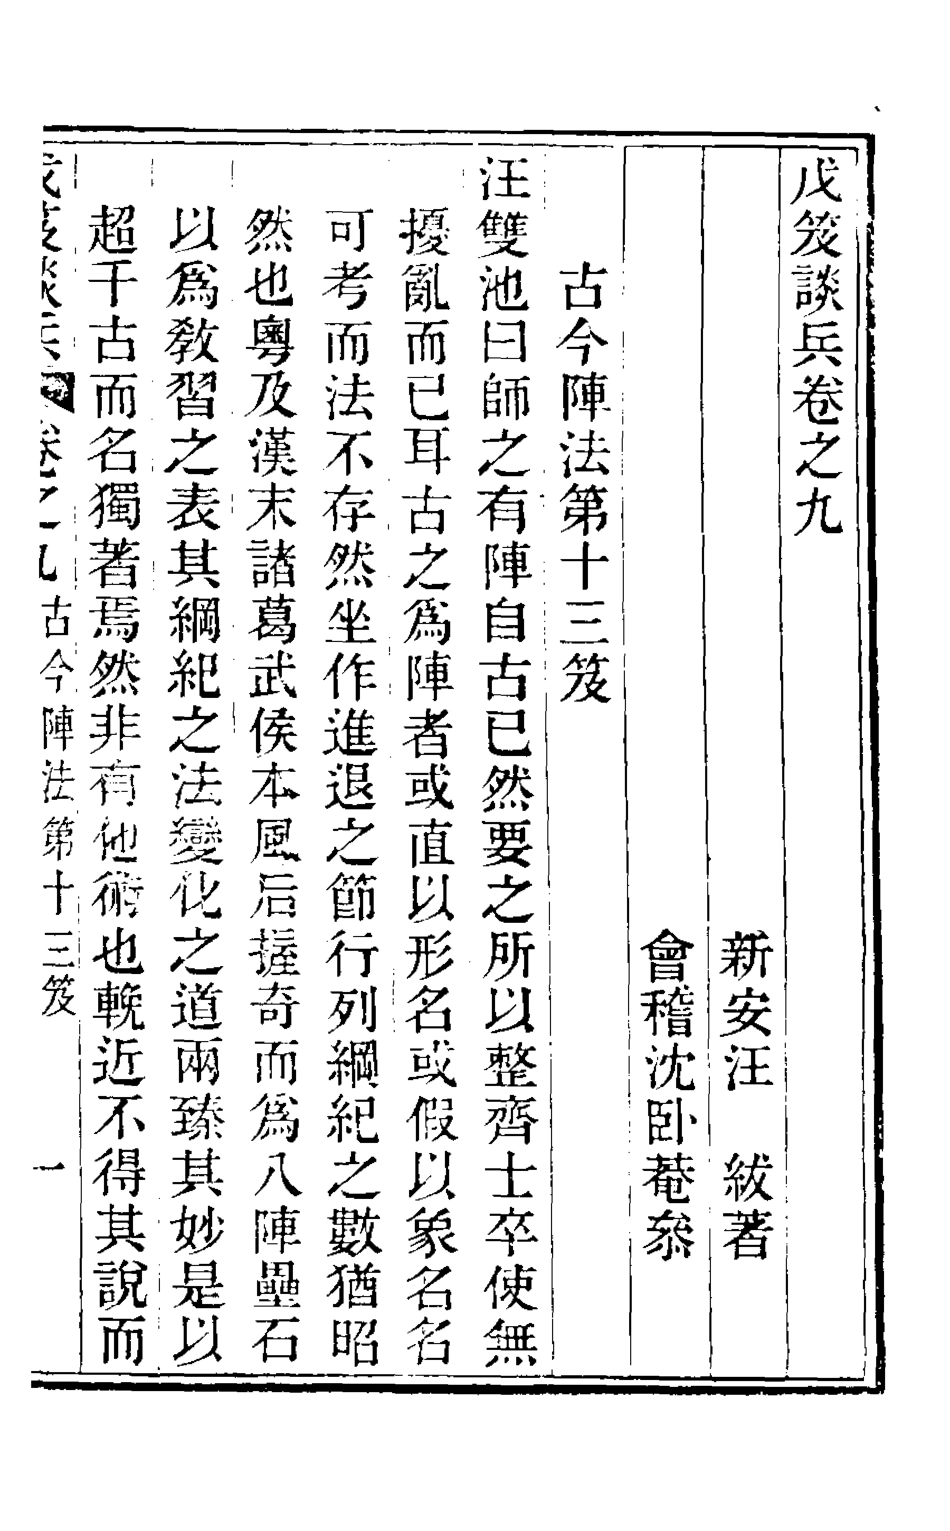 戊笈談兵卷之九
新安汪　紱著
會稽沈卧菴叅
古今陣法第十三笈
汪雙池曰師之有陣自古已然要之所以整齊士卒使無
擾亂而已耳古之爲陣者或直以形名或假以象名名
可考而法不存然坐作進退之節行列綱紀之數猶昭
然也粵及漢末諸葛武侯本風后握奇而爲八陣壘石
以爲敎習之表其綱紀之法變化之道兩臻其妙是以
超千古而名獨著焉然非有他術也輓近不得其說而
戊笈談兵 卷之九 古今陣法第十三笈 一